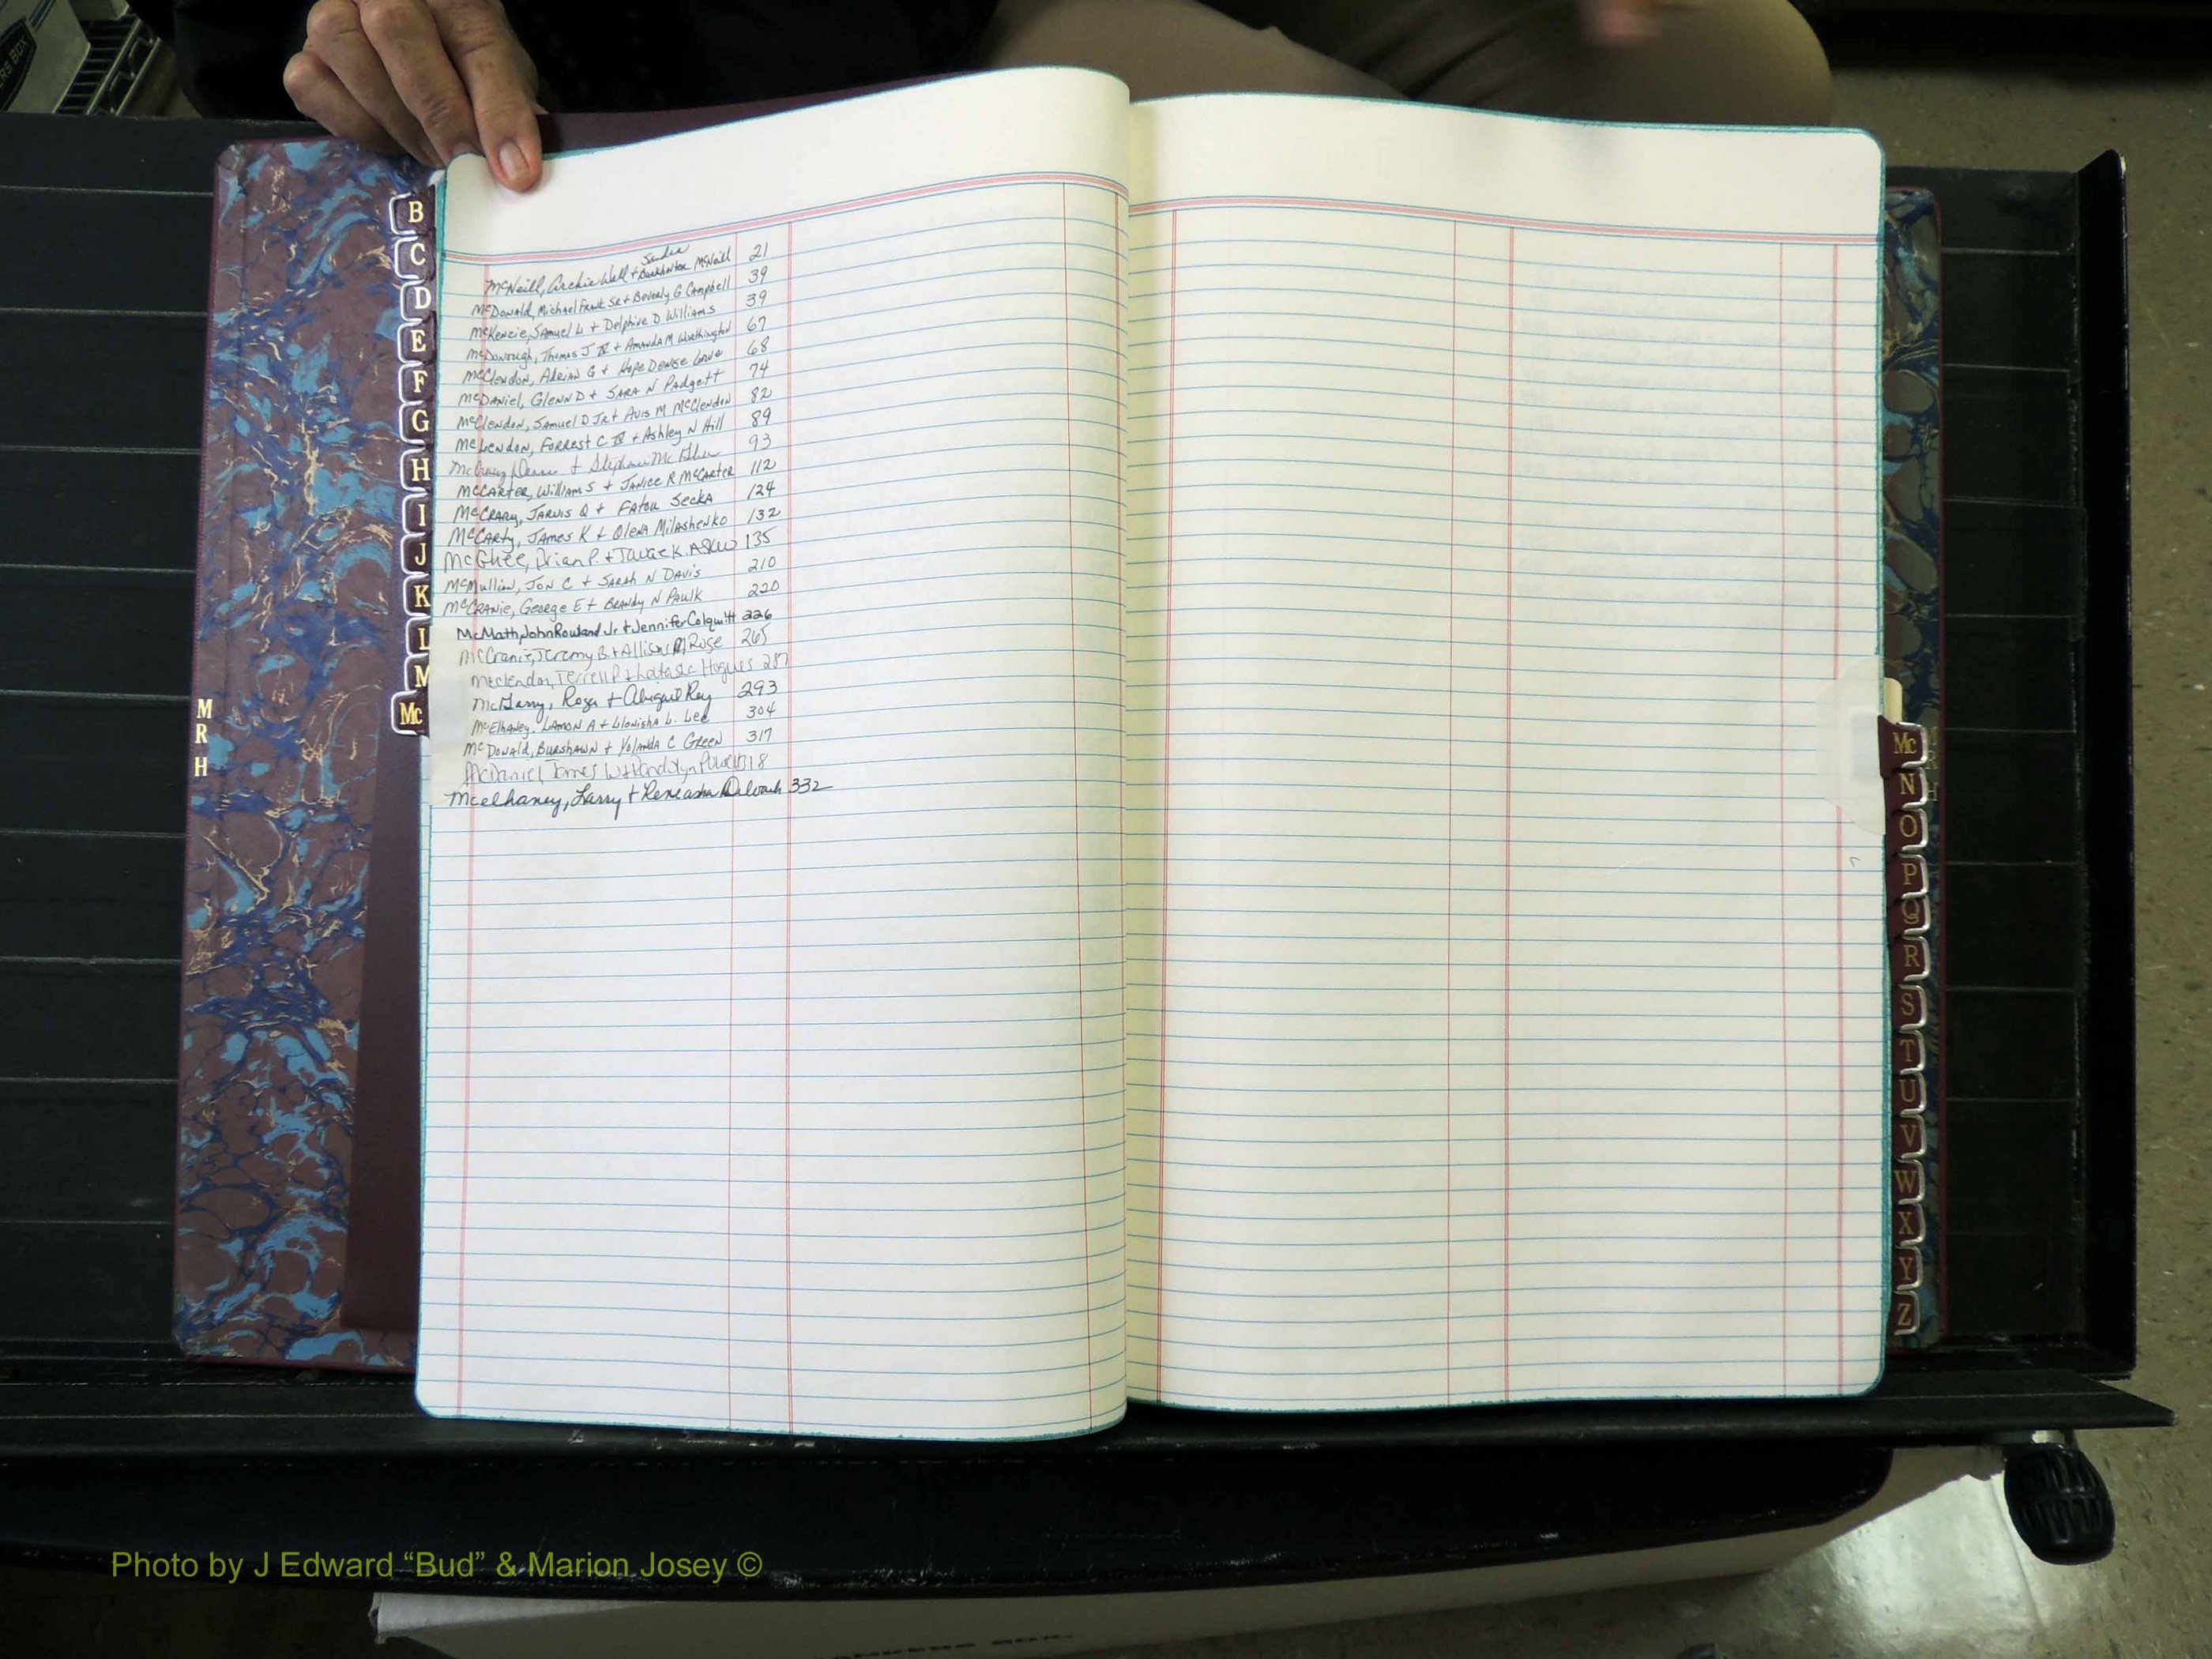 B
C
D
E
F
G
H
I
J
K
L
M
Mc
M
R
H
Sandra
McNeill, Archie Wall + Burkhalter McNeill 21
McDonald, Michael Frank Sr + Beverly G Campbell 39
McKenzie, Samuel L + Delphine D Williams 39
McDonough, Thomas J IV + Amanda M Worthington 67
McClendon, Adrian G + Hope Denise Lowe 68
McDaniel, Glenn D + Sara N Padgett 74
McClendon, Samuel D Jr + Avis M McClendon 82
McLendon, Forrest C IV + Ashley N Hill 89
+ 93
McCarter, William S + Janice R McCarter 112
McCrary, Jarvis Q + Fatou Secka 124
McCarty, James K + Olena Milashenko 132
McGhee, Brian P. + K. Askew 135
McMullin, Jon C + Sarah N Davis 210
McCranie, George E + Brandy N Paulk 220
McMath, John Rowland Jr + Jennifer Colquitt 226
McCranie, Jeremy B. + Allison M Rose 265
McClendon, Terrell P + Hughes 287
Roger + Abigail Rey 293
McElhaney, Lamon A + L. Lee 304
McDonald, Burshawn + Yolanda C Green 317
McDaniel, James W + Powell 318
Mcelhaney, Larry + 332
Mc
N
O
P
Q
R
S
T
U
V
W
X
Y
Z
Photo by J Edward “Bud” & Marion Josey ©